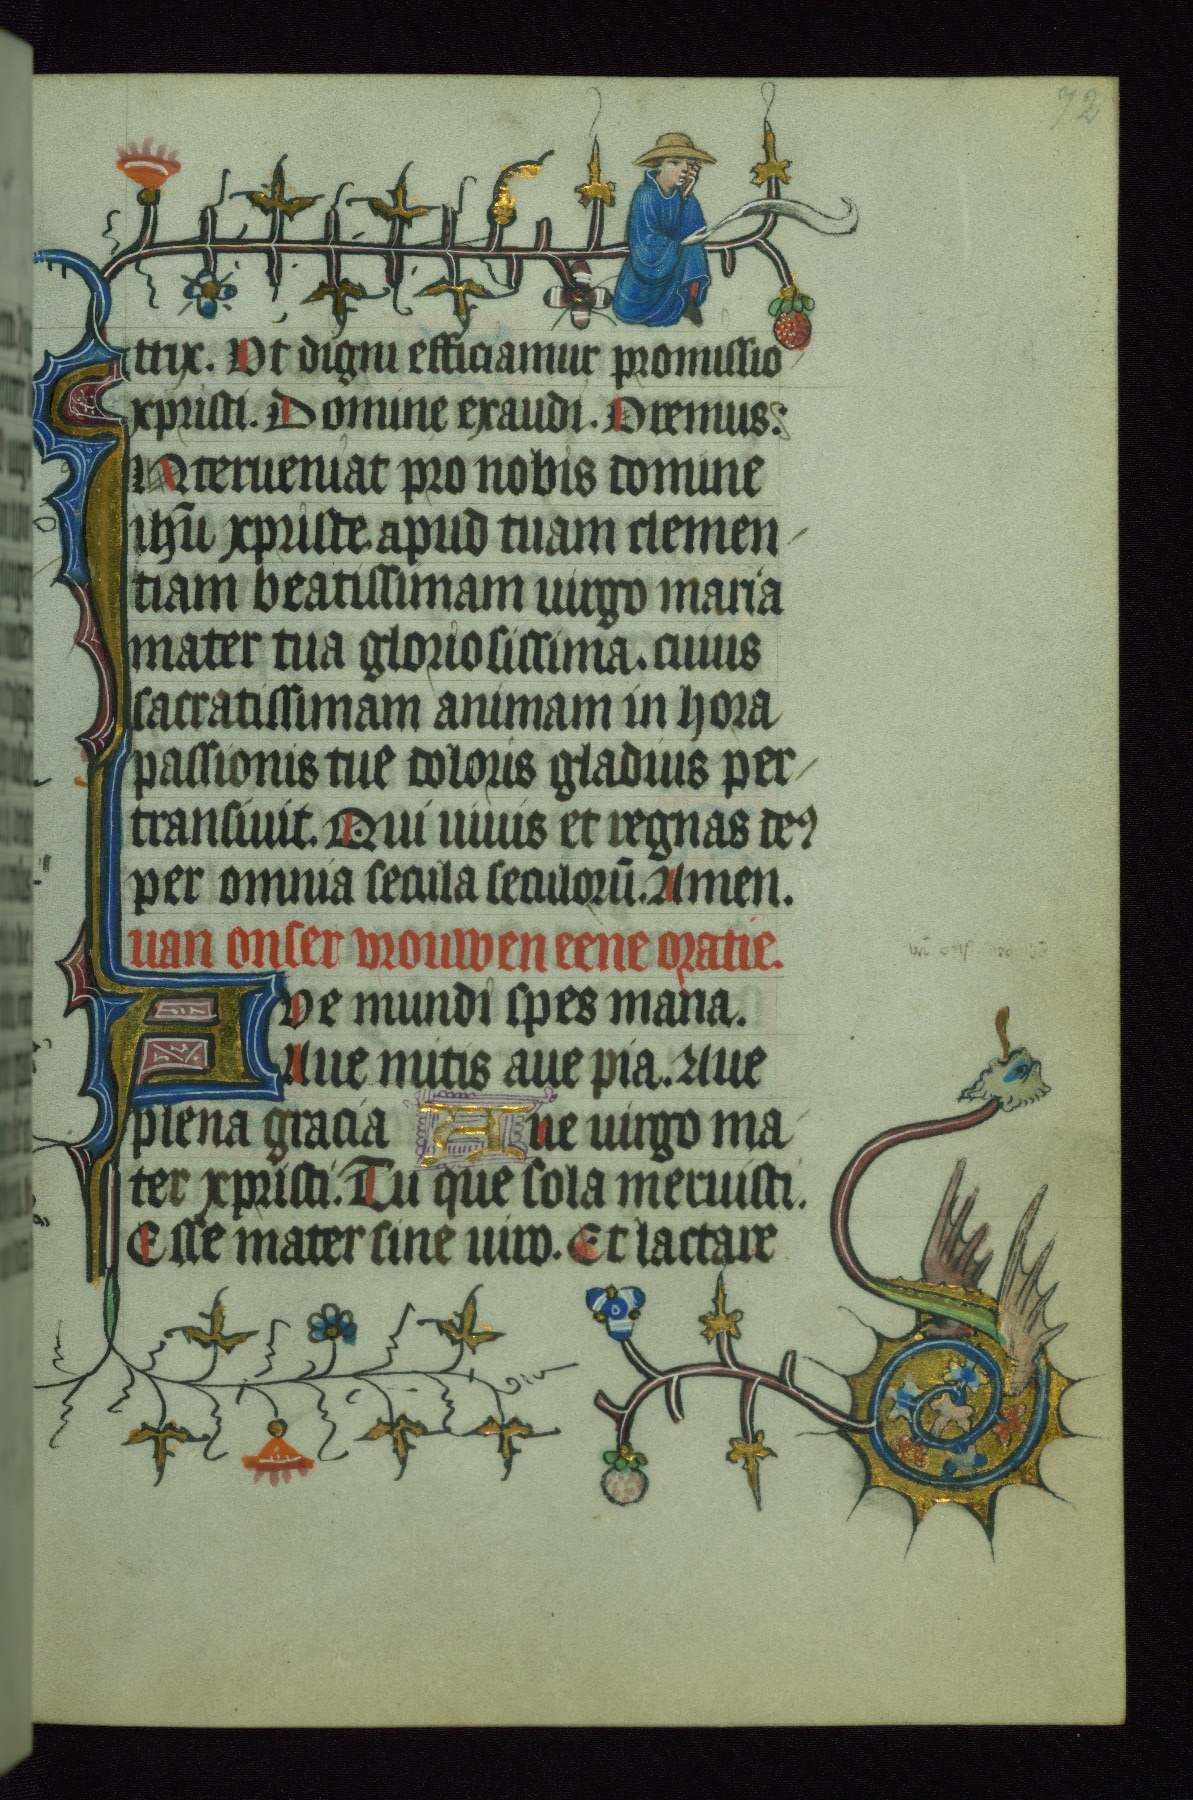 72
trix. Ut digni efficiamur promissio
xpristi. Domine exaudi. Oremus:
Interueniat pro nobis domine
ihū xpriste apud tuam clemen
tiam beatissimam uirgo maria
mater tua gloriosissima. cuius
sacratissimam animam in hora
passionis tue doloris gladius per
transiuit. Qui uiuis et regnas de⁹
per omnia secula seculorū. Amen.
uan onser vrouwen eene oratie.
Aue mundi spes maria.
Aue mitis aue pia. Aue
plena gracia Aue uirgo ma
ter xpristi. Tu que sola meruisti.
Esse mater sine uiro. Et lactare